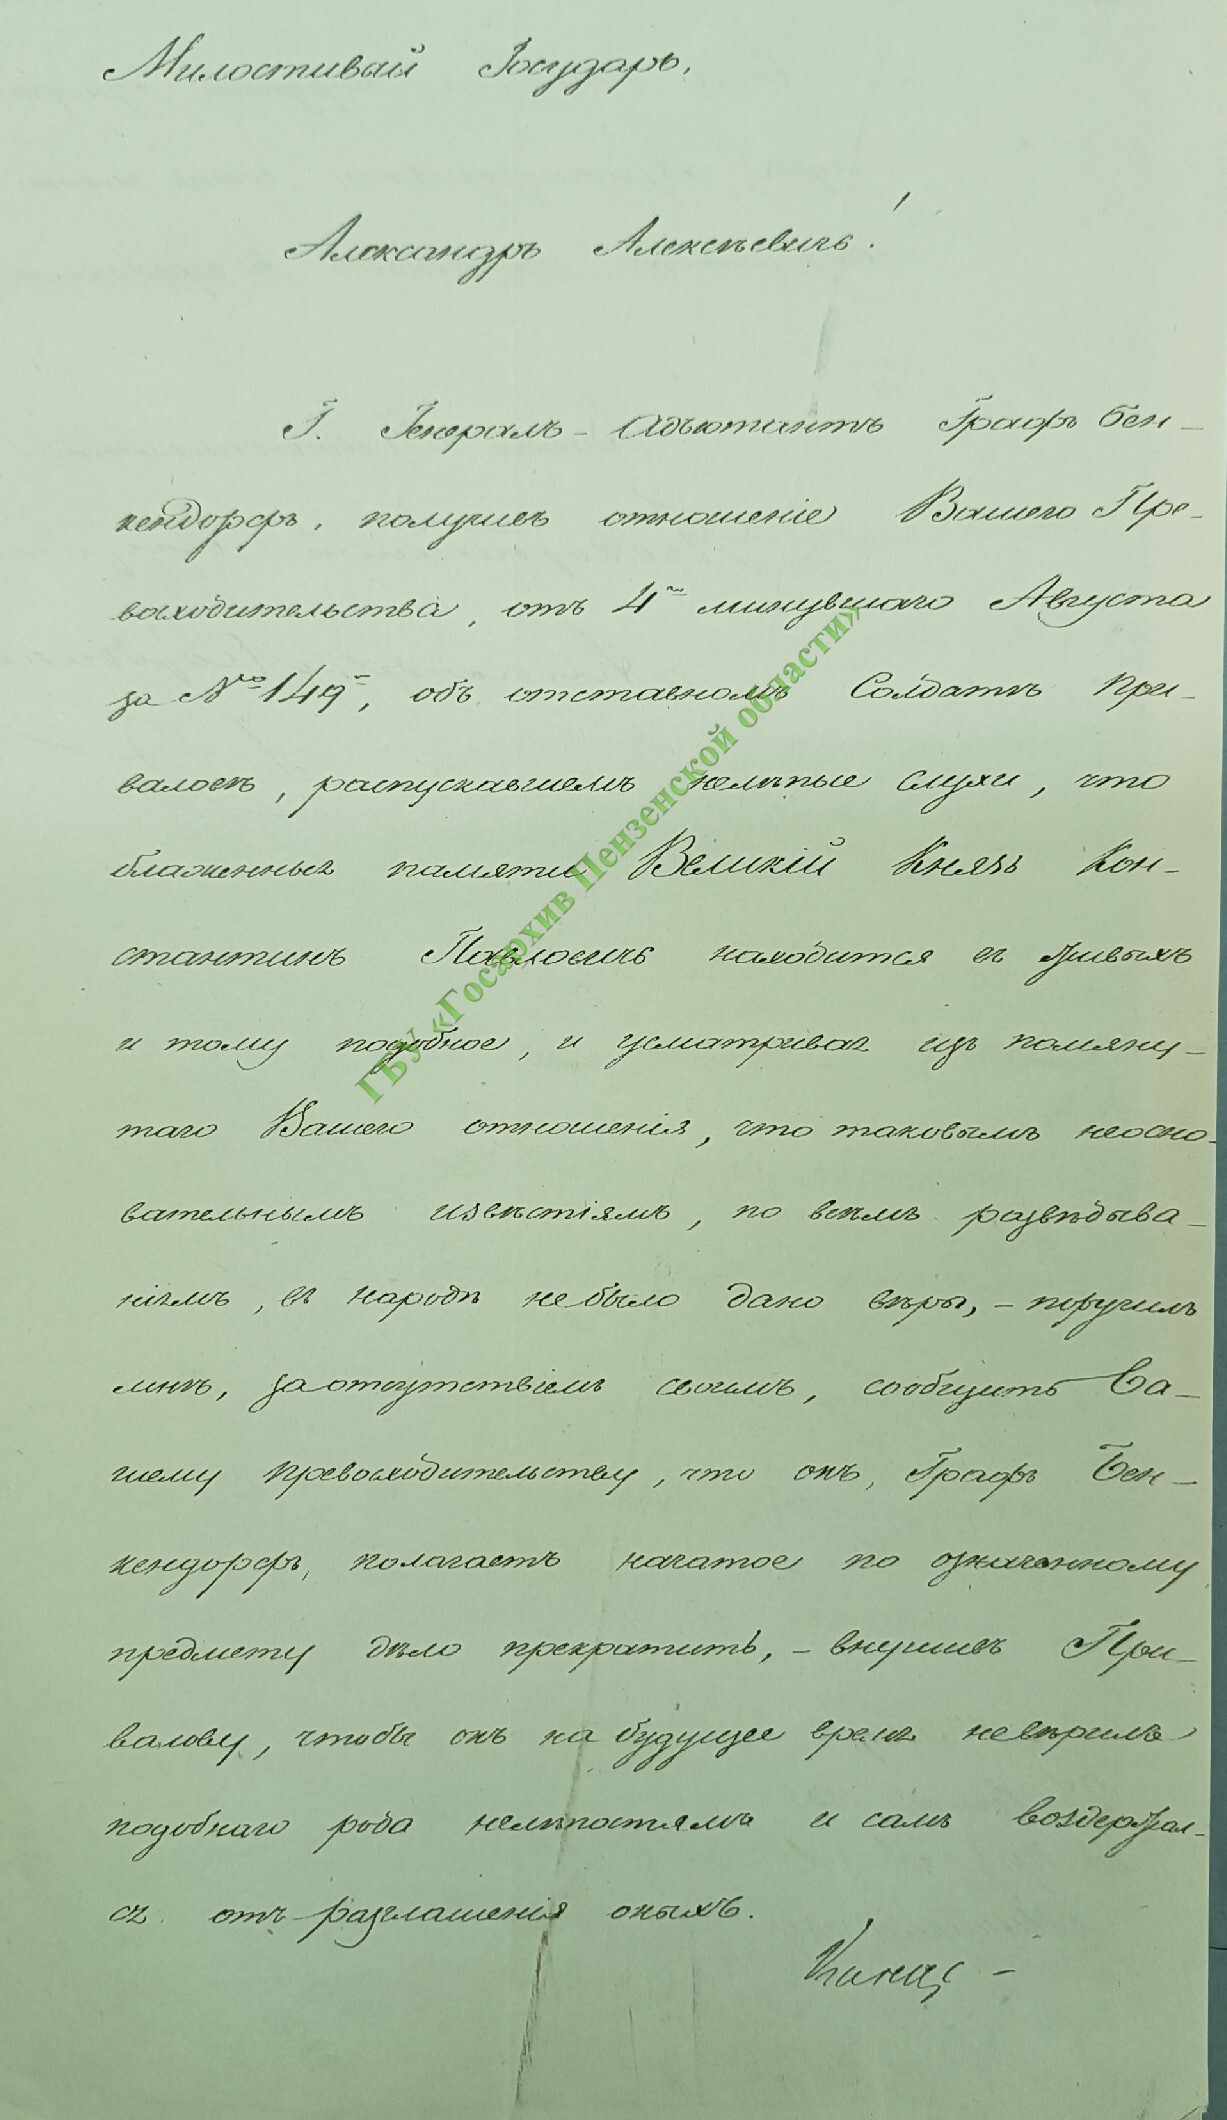 Милостивый Государь,
Александръ Алексѣевичь!
Г. Генералъ-Адъютантъ Графъ Бен-
кендорфъ, получивъ отношеніе Вашего Пре-
восходительства, отъ 4го минувшаго Августа
за №149, объ отставномъ Солдатѣ При-
валовѣ, распускавшемъ нелѣпые слухи, что
блаженныя памяти Великій Князь Кон-
стантинъ Павловичь находится въ живыхъ
и тому подобное, и усматривая изъ помяну-
таго Вашего отношенія, что таковымъ неосно-
вательнымъ извѣстіямъ, по всѣмъ развѣдыва-
ніямъ, въ народѣ небыло дано вѣры, - поручилъ
мнѣ, за отсутствіемъ своимъ, сообщить Ва-
шему Превосходительству, что онъ, Графъ Бен-
кендорфъ, полагаетъ начатое по означенному
предмету дѣло прекратить, - внушивъ При-
валову, чтобы онъ на будущее время невѣрилъ
подобнаго рода нелѣпостямъ и самъ воздержал-
ся отъ разглашенія оныхъ.
ГБУ «Госархив Пензенской области»